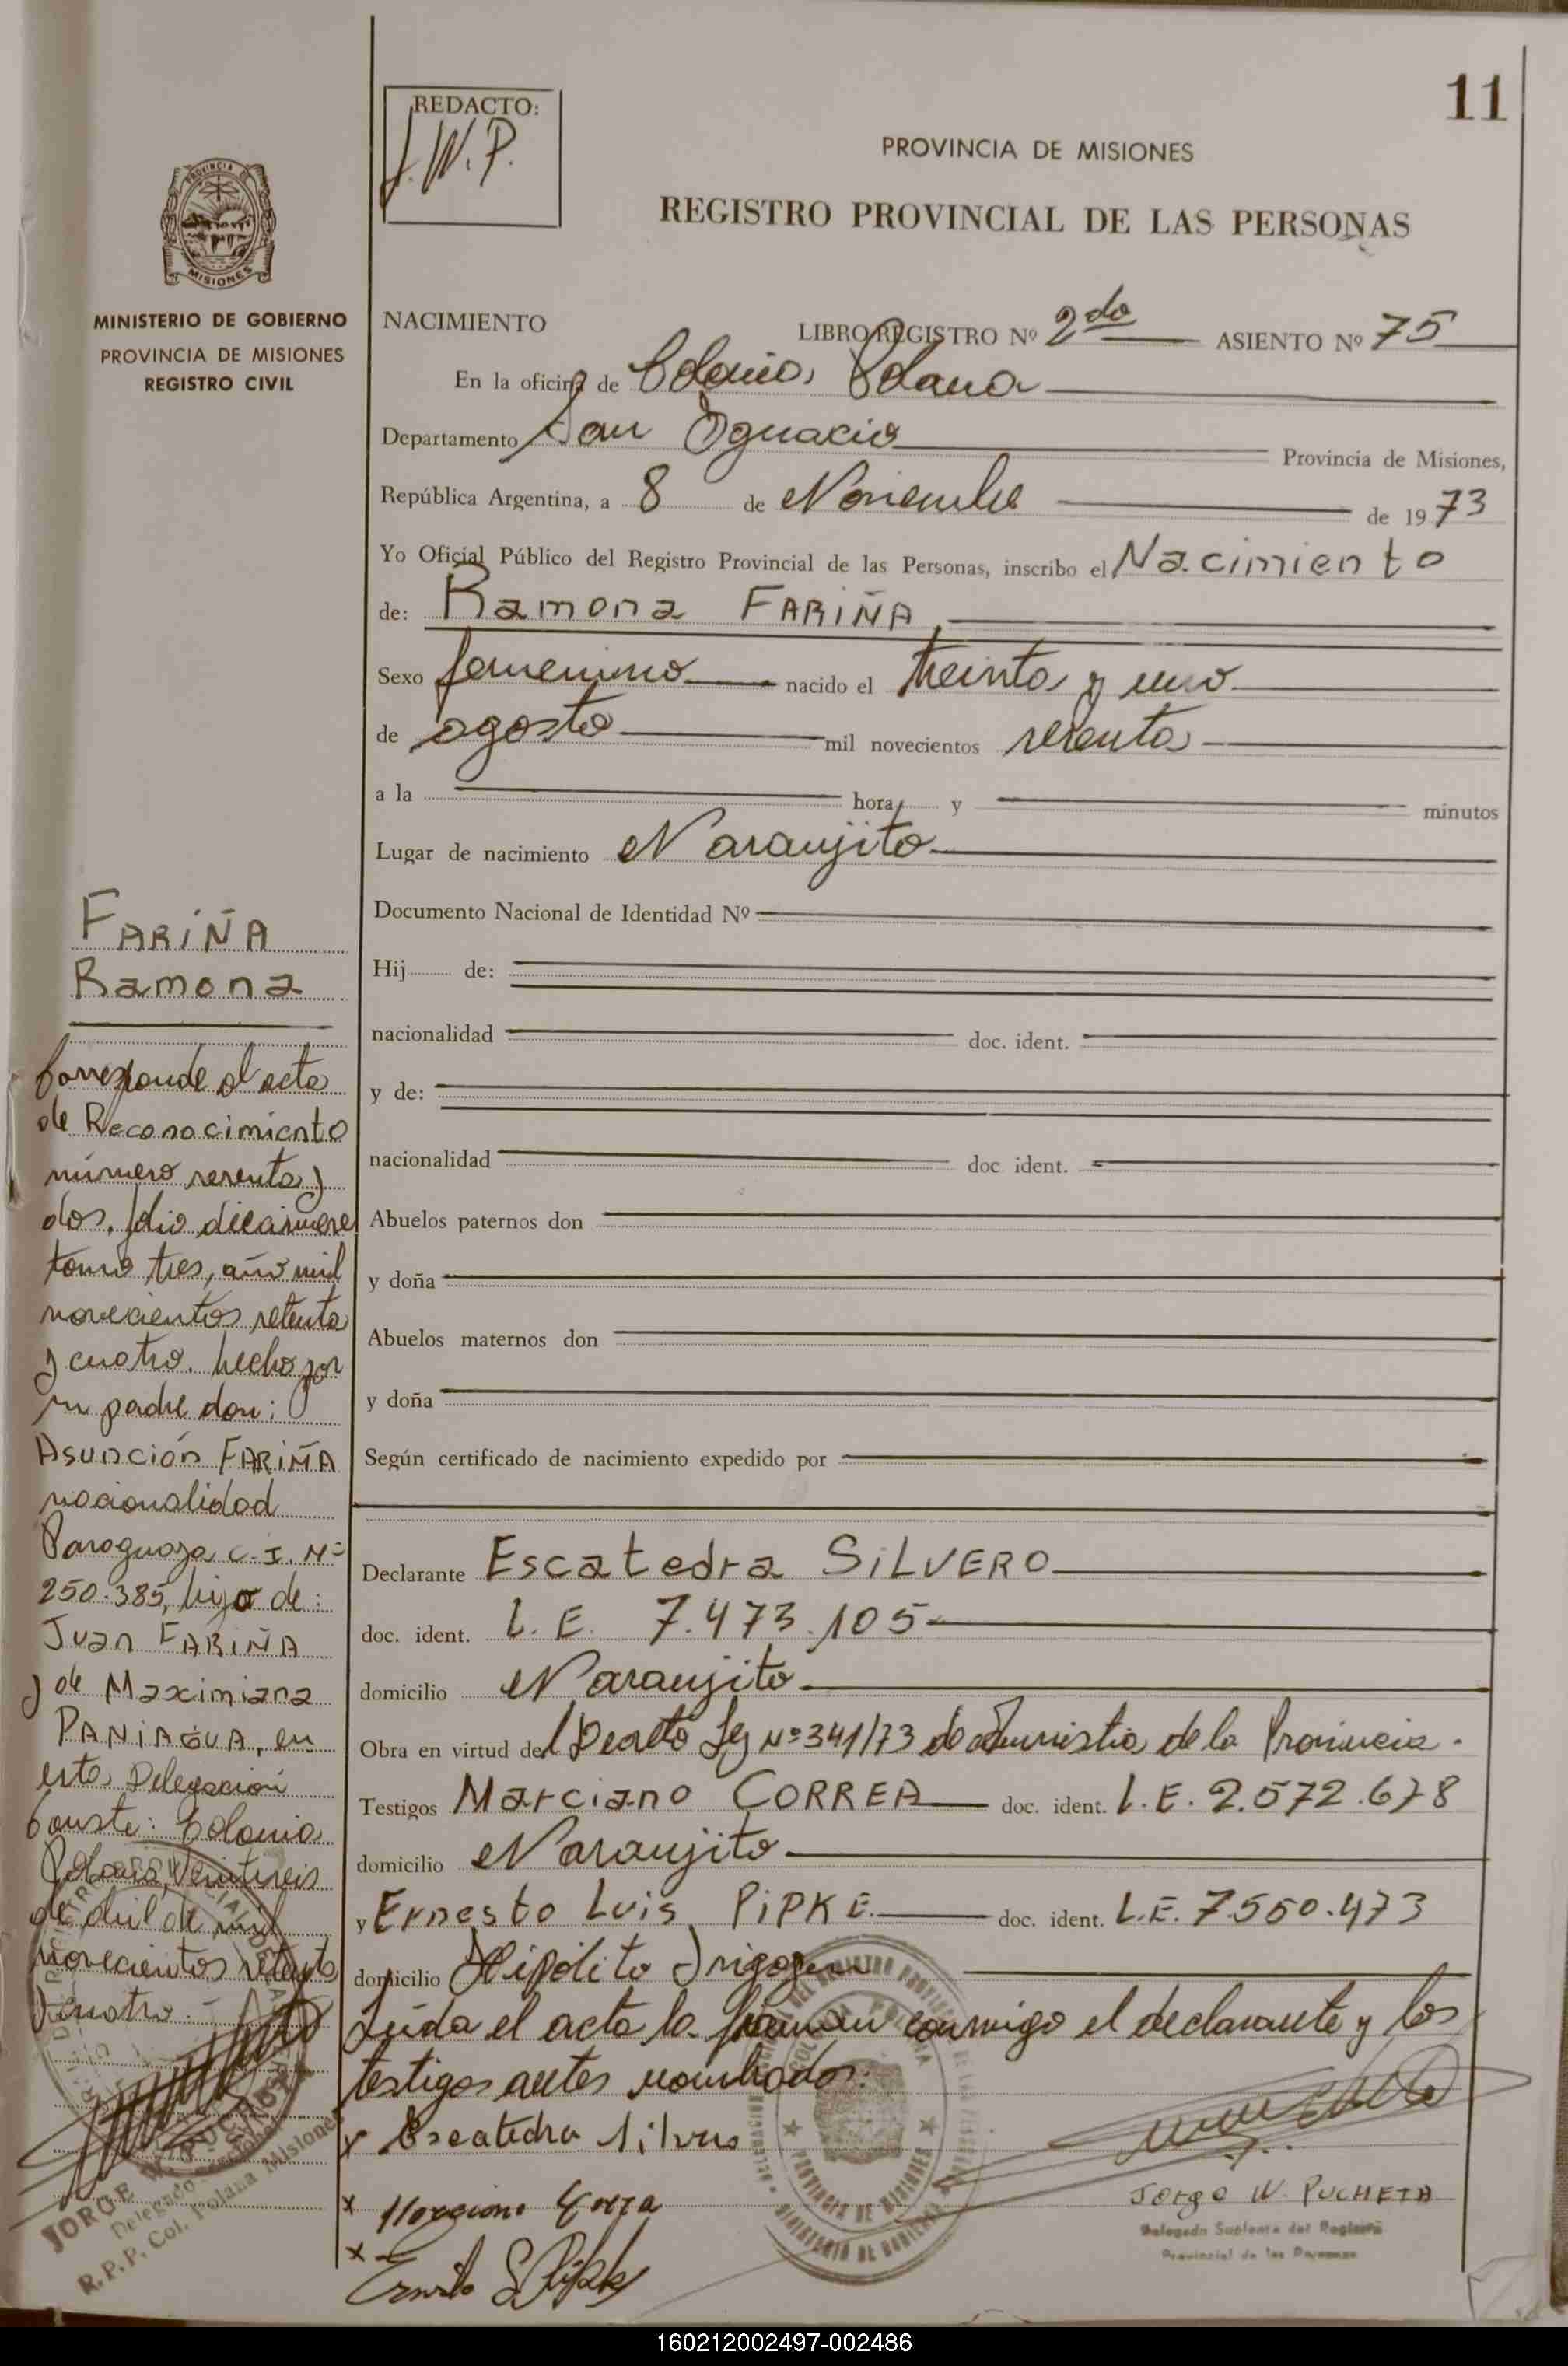 11
REDACTO:
J.W.P.
PROVINCIA DE MISIONES
REGISTRO PROVINCIAL DE LAS PERSONAS
PROVINCIA DE
MISIONES
MINISTERIO DE GOBIERNO
PROVINCIA DE MISIONES
REGISTRO CIVIL
NACIMIENTO LIBRO REGISTRO Nº 2do ASIENTO Nº 75
En la oficina de Colonia Polana
Departamento San Ignacio Provincia de Misiones,
República Argentina, a 8 de Noviembre de 1973
Yo Oficial Público del Registro Provincial de las Personas, inscribo el Nacimiento
de: Ramona FARIÑA
Sexo femenino nacido el treinta y uno
de agosto mil novecientos sesenta
a la hora y minutos
Lugar de nacimiento Naranjito
Documento Nacional de Identidad Nº
Hij de:
nacionalidad doc. ident.
y de:
nacionalidad doc ident.
Abuelos paternos don
y doña
Abuelos maternos don
y doña
Según certificado de nacimiento expedido por
Declarante Escatedra SILVERO
doc. ident. L.E. 7.473.105
domicilio Naranjito
Obra en virtud del Decreto Ley Nº 341/73 de Amnistia de la Provincia.
Testigos Marciano CORREA doc. ident. L.E. 2.572.678
domicilio Naranjito
y Ernesto Luis PIPKE. doc. ident. L.E. 7.550.473
domicilio Hipólito Irigoyen
Leída el acta la firman conmigo el declarante y los
testigos antes nombrados.
x Escatedra Silvero
x Marciano Correa
x Ernesto L Pipke
Jorge W. PUCHETA
Delegado Suplente del Registro
Provincial de las Personas
FARIÑA
Ramona
Corresponde al acta
de Reconocimiento
número sesenta y
dos, folio
tomo tres, año mil
novecientos setenta
y cuatro. hecho por
su padre don:
Asunción FARIÑA
nacionalidad
Paraguaya C.I. Nº
250.385, hijo de:
Juan FARIÑA
y de Maximiana
PANIAGUA, en
esta Delegación
Conste: Colonia
Polana, Veintiseis
de abril de mil
novecientos setenta
y cuatro.-
JORGE W. PUCHETA
Delegado
R.P.P. Col. Polana Misiones
COLONIA POLANA
PROVINCIA DE MISIONES
MINISTERIO DE GOBIERNO
160212002497-002486